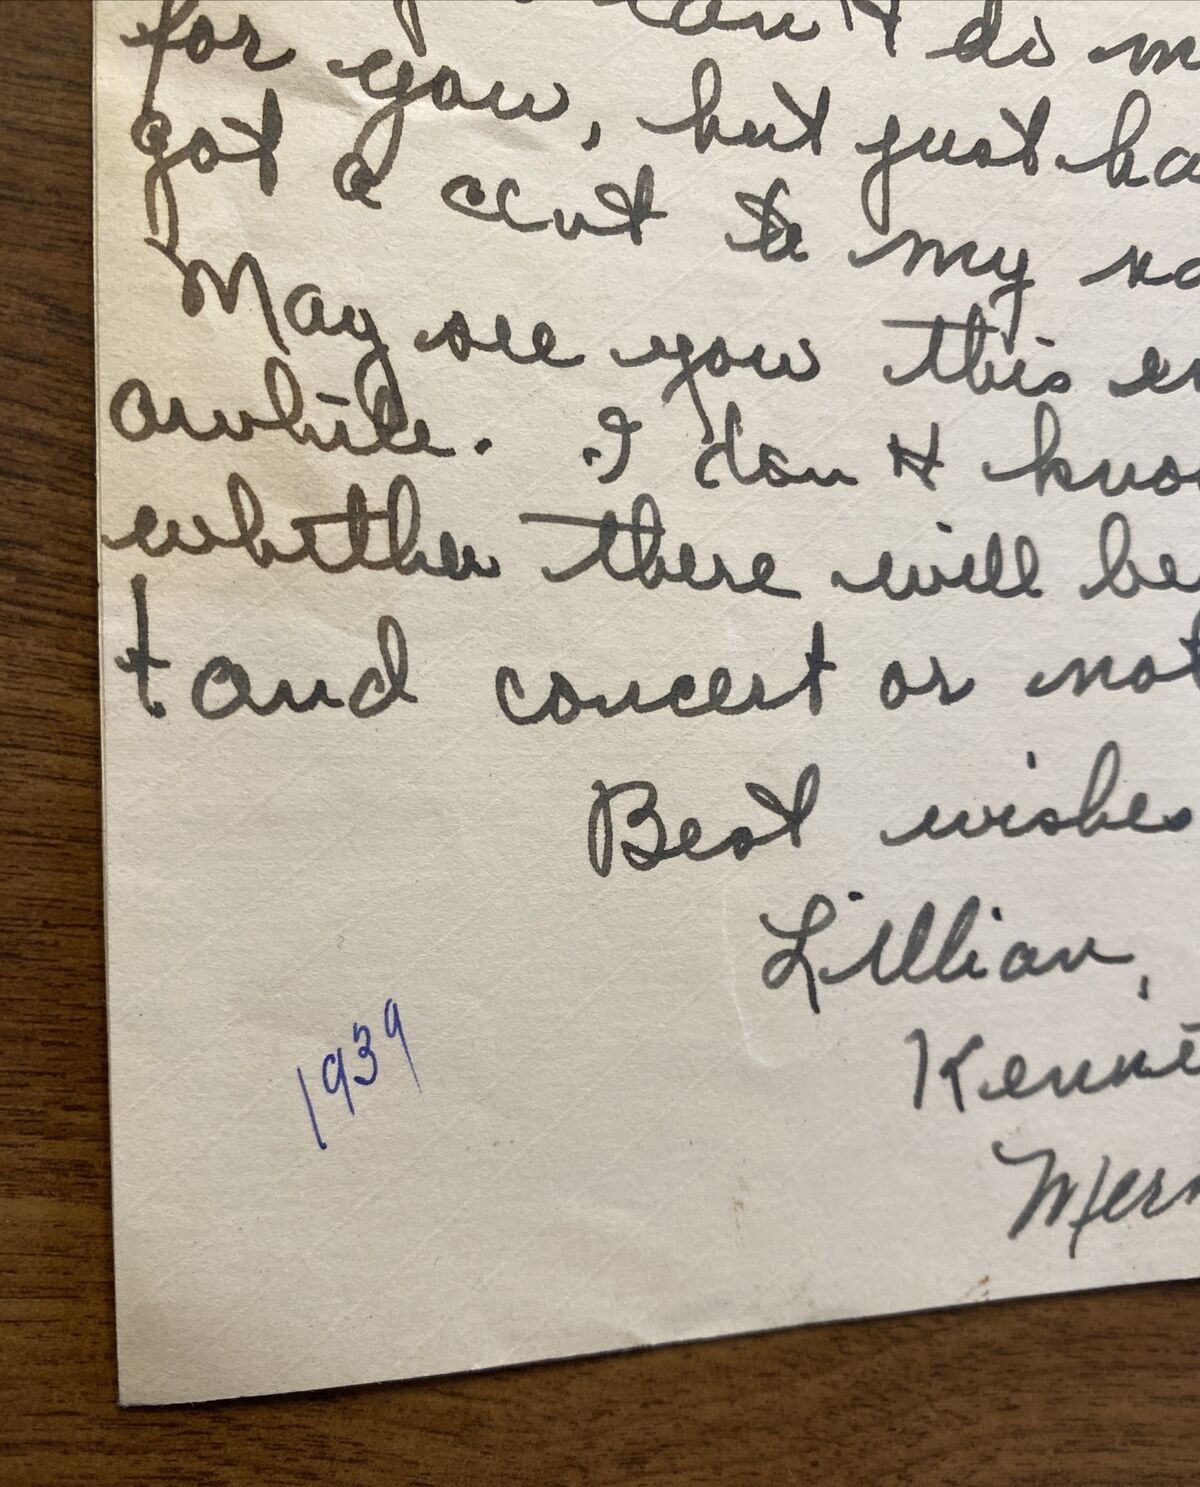 can't do m
for you, but just ha
got a cent to my na
May see you this ev
awhile. I don't know
whether there will be
t and concert or not
Best wishes
Lillian,
Kenne
Mern
1939